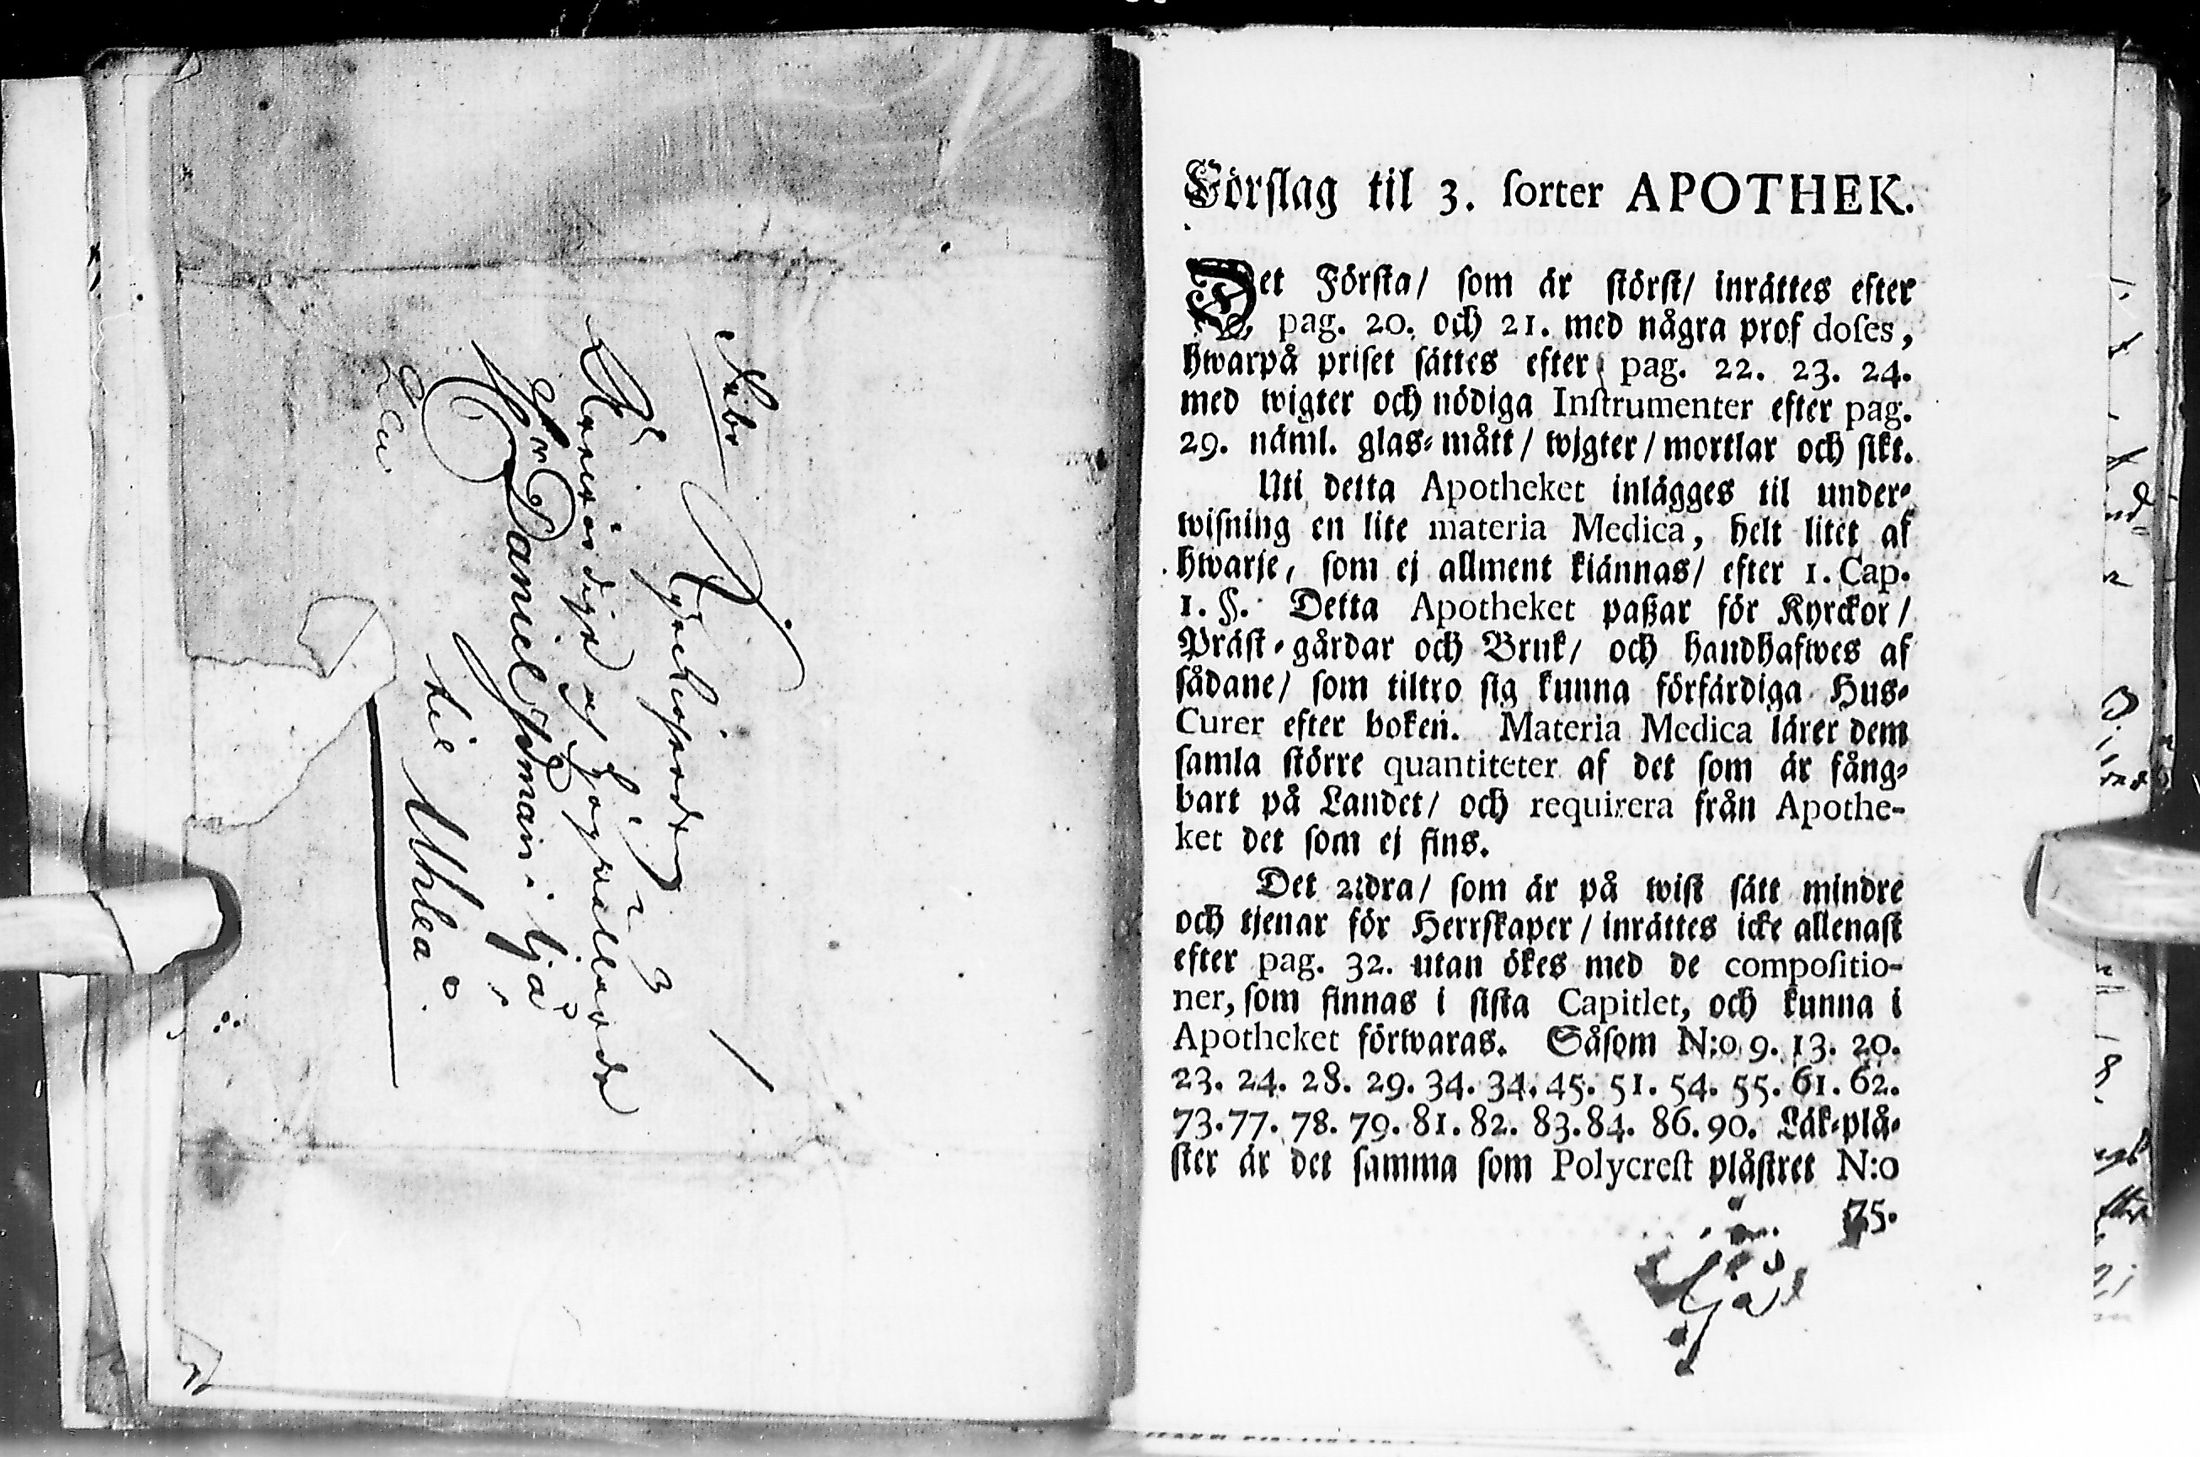 Åbo
Kyrckioherde
Herr Daniel
til Uhlea
Förslag til 3. sorter APOTHEK.
Det Första/ som är störst/ inrättes efter
pag. 20. och 21. med några prof doses,
hwarpå priset sättes efter pag. 22. 23. 24.
med wigter och nödiga Instrumenter efter pag.
29. näml. glas-mått/ wigter/ mortlar och sikt.
Uti detta Apotheket inlägges til under-
wisning en lite materia Medica, helt litet af
hwarje, som ej allment kiännas/ efter 1. Cap.
1. §. Detta Apotheket paßar för Kyrckor/
Präst-gårdar och Bruk/ och handhafwes af
sådane/ som tiltro sig kunna förfärdiga Hus-
Curer efter boken. Materia Medica lärer dem
samla större quantiteter af det som är fång-
bart på Landet/ och requirera från Apothe-
ket det som ej fins.
Det Andra/ som är på wist sätt mindre
och tjenar för Herrskaper/ inrättes icke allenast
efter pag. 32. utan ökes med de compositio-
ner, som finnas i sista Capitlet, och kunna i
Apotheket förwaras. Såsom N:o 9. 13. 20.
23. 24. 28. 29. 34. 34. 45. 51. 54. 55. 61. 62.
73. 77. 78. 79. 81. 82. 83. 84. 86. 90. Läk-plå-
ster är det samma som Polycrest plåstret N:o
75.